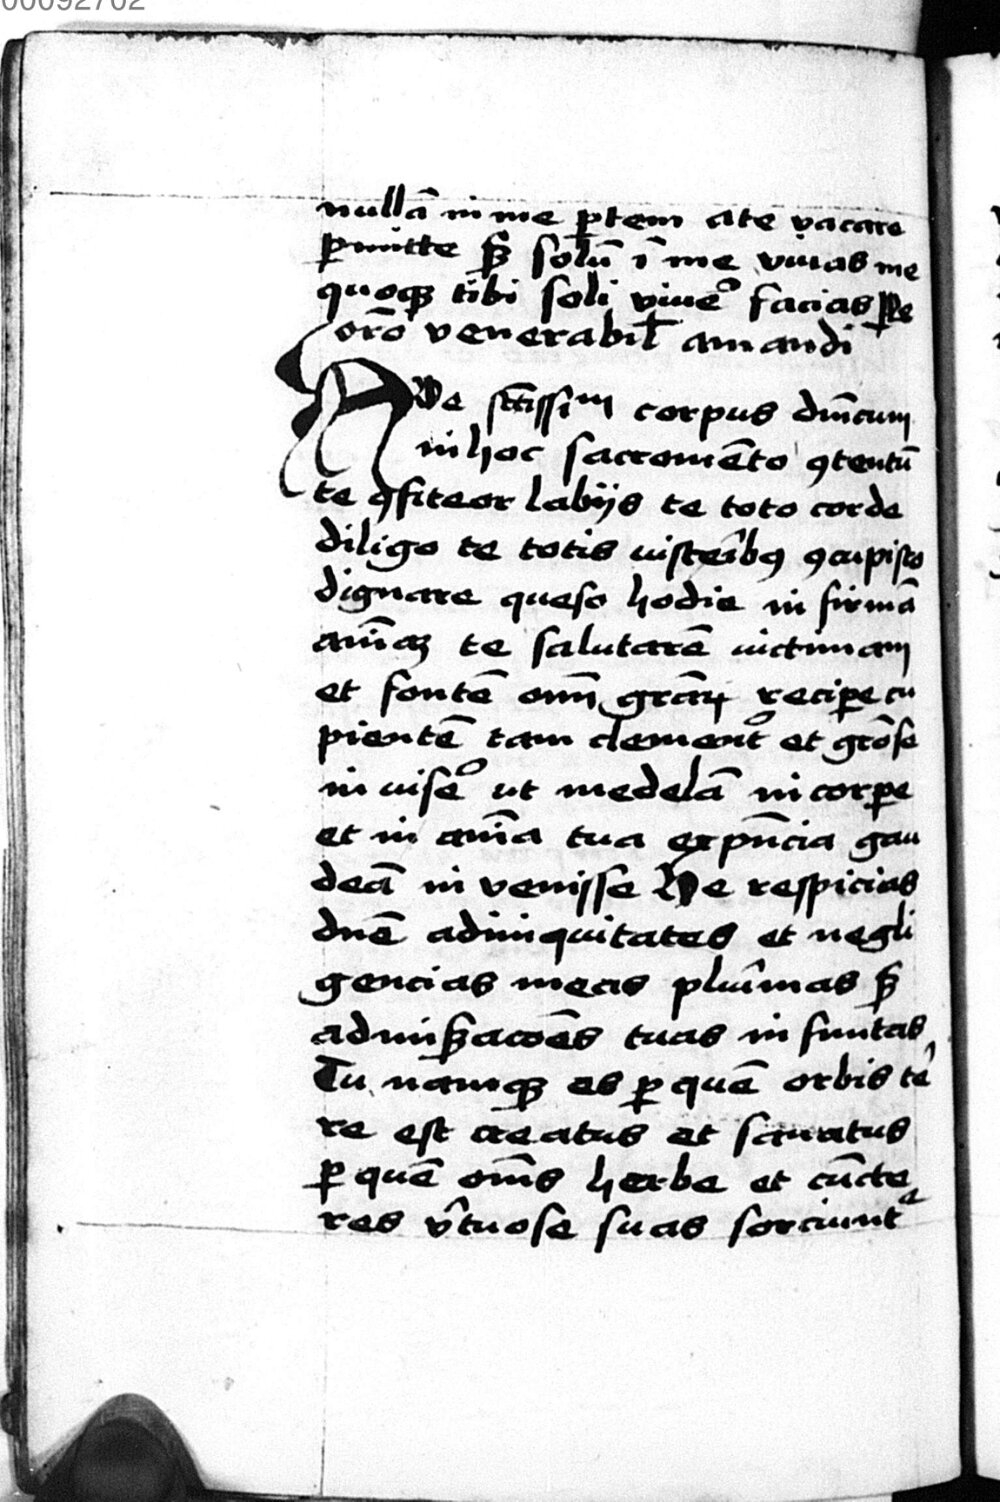 00092702
nullā in me ꝑtem ate vacare
ꝑmitte sꝫ solū ī me viuas me
quoqꝫ tibi soli viue͛ facias ꝑ te
orō venerabilꝭ amandi
Aue sctīssim corpus dn̄icum
in hoc sacromēto ꝯtentū
te ꝯfiteor labijs te toto corde
diligo te totis uisceribꝰ ꝯcupisco
dignare queso hodie in firmā
anīaꝫ te salutarē uictimam
et fontē om̄ gr̄aꝝ recipe cu
pientē tam clement͛ et gr̄ose
in uise͛ ut medelā in corpe
et in anīa tua ex pn̄cia gau
deā in venisse Ne respicias
dn̄e adiniquitates et negli
gencias meas plurimas sꝫ
admiẜacōēs tuas in finitas
Tu namqꝫ es ꝑ quē orbis te͛
re est creatus et saluatus
ꝑ quē om̄s herbe et cūcte
res v̄tuose suas sorciunt